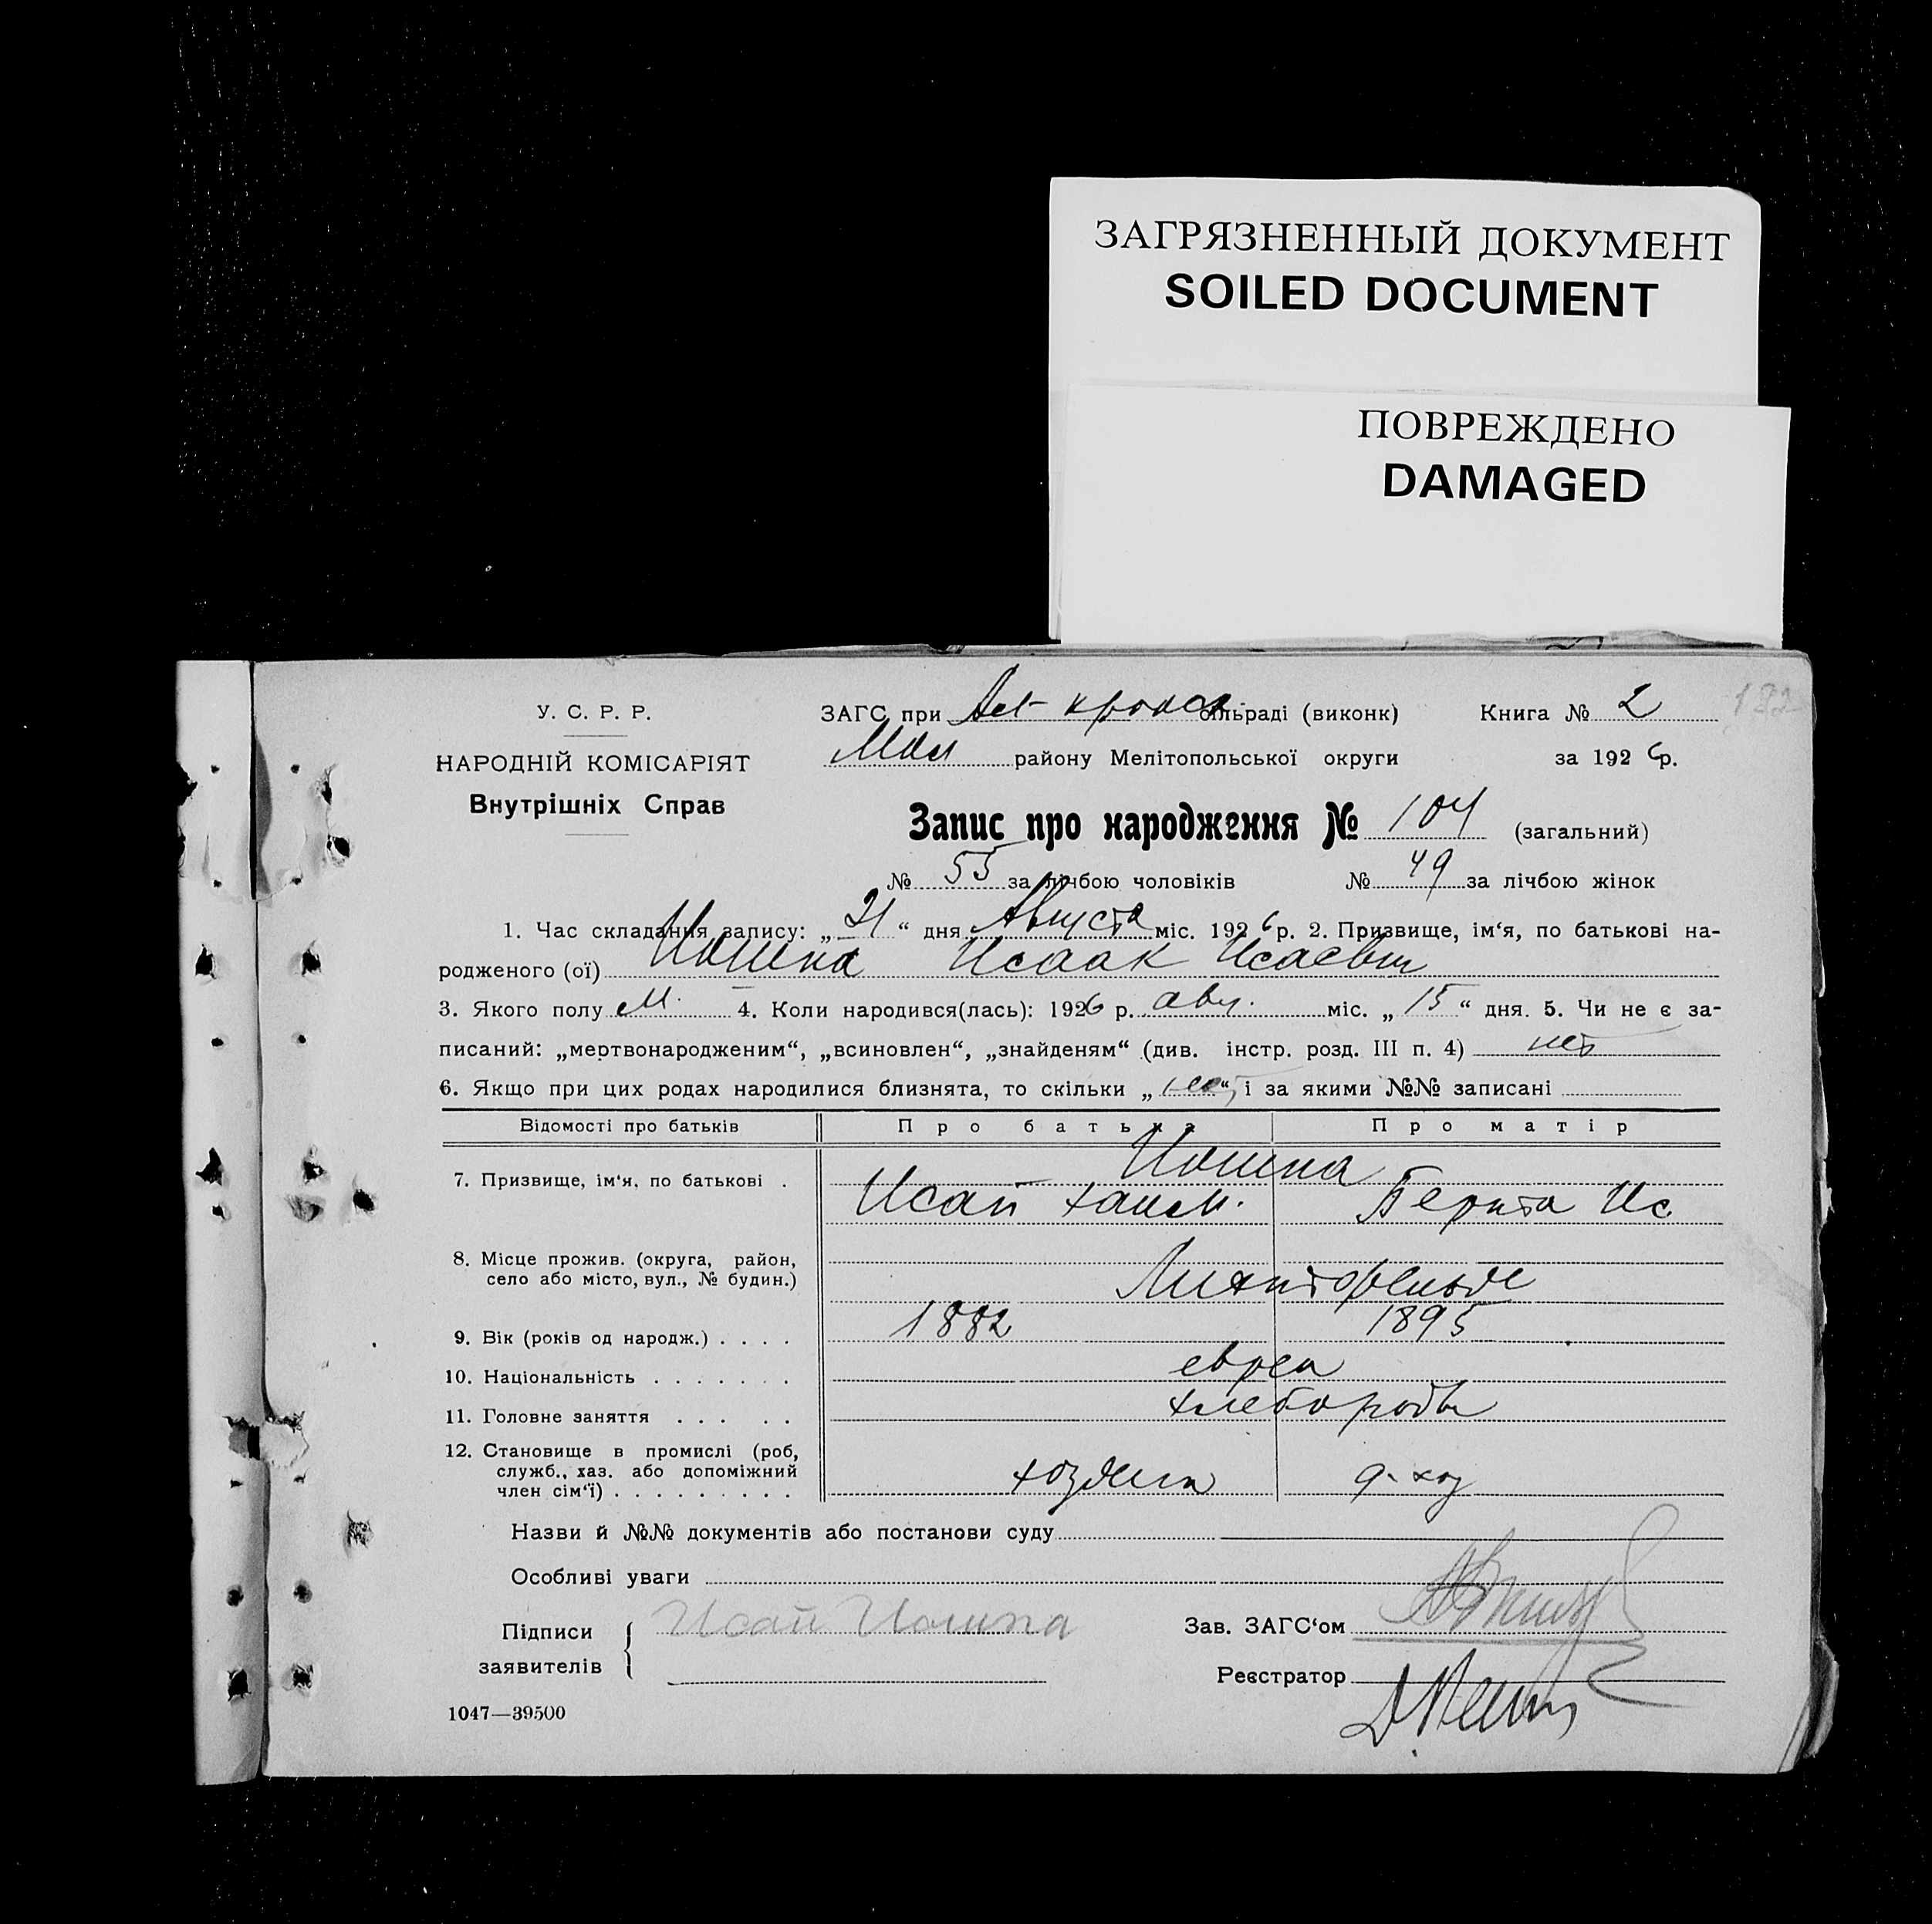 ЗАГРЯЗНЕННЫЙ ДОКУМЕНТ
SOILED DOCUMENT
ПОВРЕЖДЕНО
DAMAGED
132
У. С. Р. Р.
НАРОДНІЙ КОМІСАРІЯТ
Внутрішніх Справ
ЗАГС при сільраді (виконк) Книга № 2
Мол району Мелітопольської округи за 1926 р.
Запис про народження № 104 (загальний)
№ 55 за лічбою чоловіків № 49 за лічбою жінок
1. Час складання запису: „21“ дня Августа міс. 1926 р. 2. Призвище, ім‘я, по батькові на-
родженого (ої) Иошпа Исаак Исаевич
3. Якого полу м. 4. Коли народився(лась): 1926 р. авг. міс. „15“ дня. 5. Чи не є за-
писаний: „мертвонародженим“, „всиновлен“, „знайденям“ (див. інстр. розд. III п. 4) нет
6. Якщо при цих родах народилися близнята, то скільки „нет“, і за якими №№ записані
Відомості про батьків Про батька Про матір
7. Призвище, ім‘я, по батькові . Иошпа
Исай Хаим. Берта Ис
8. Місце прожив. (округа, район,
село або місто, вул., № будин.) Лихтфельде
9. Вік (років од народж.) . . . . 1882 1895
10. Національність . . . . . . . евреи
11. Головне заняття . . . . . хлеборобы
12. Становище в промислі (роб,
служб., хаз. або допоміжний
член сім‘ї) . . . . . . . . . хозяин д. хоз
Назви й №№ документів або постанови суду
Особливі уваги
Підписи
заявителів
Исай Иошпа
Зав. ЗАГС‘ом
Реєстратор
1047—39500